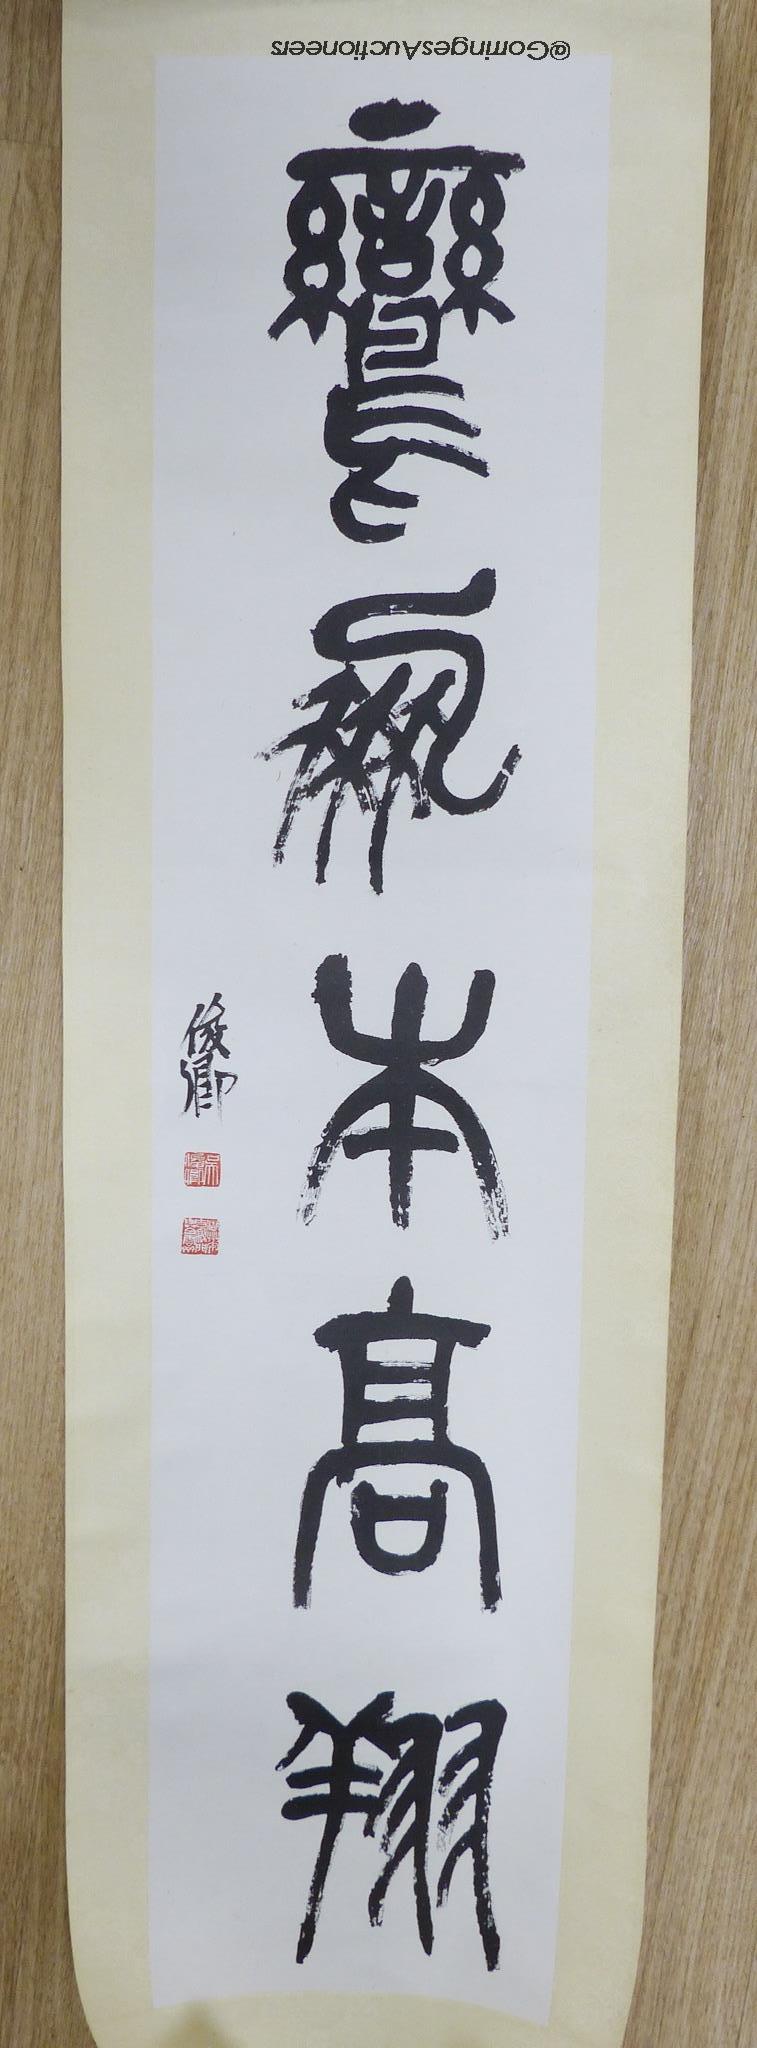 @GorringesAuctioneers
鸞鳳本高翔
俊卿
吳俊卿